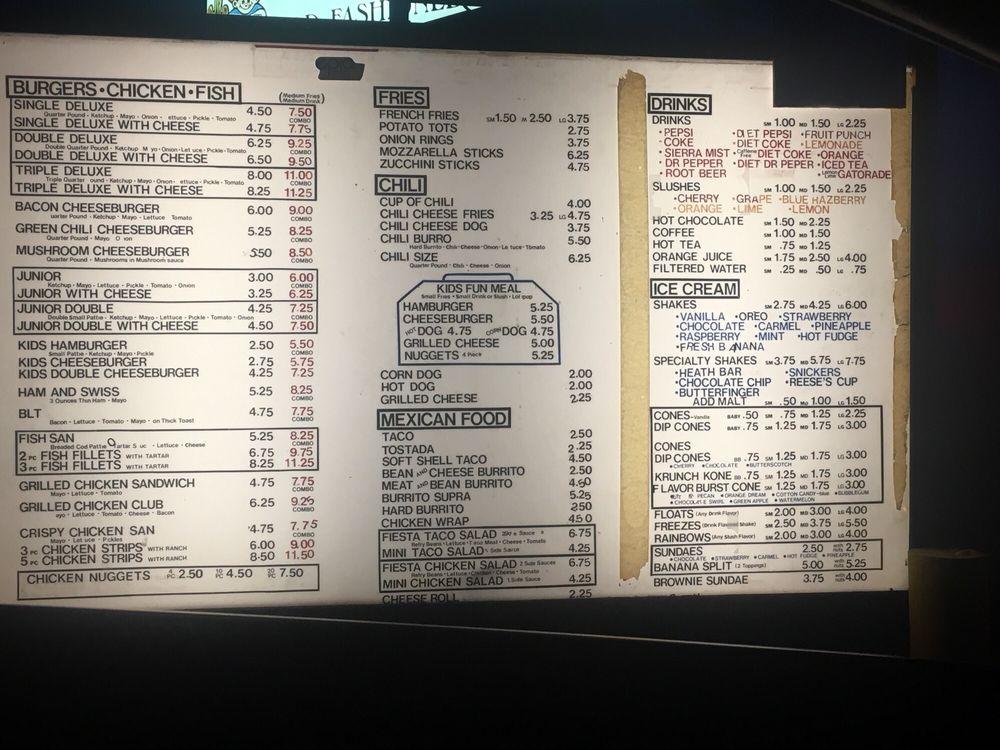 BURGERS•CHICKEN•FISH
(Medium Fries)
(Medium Drink)
SINGLE DELUXE 4.50 7.50
Quarter Pound - Ketchup - Mayo - Onion - ettuce - Pickle - Tomato COMBO
SINGLE DELUXE WITH CHEESE 4.75 7.75
DOUBLE DELUXE 6.25 9.25
Double Quarter Pound - Ketchup M yo - Onion - Lettuce - Pickle - Tomato COMBO
DOUBLE DELUXE WITH CHEESE 6.50 9.50
TRIPLE DELUXE 8.00 11.00
Triple Quarter ound - Ketchup - Mayo - Onion - ettuce - Pickle - Tomato COMBO
TRIPLE DELUXE WITH CHEESE 8.25 11.25
BACON CHEESEBURGER 6.00 9.00
uarter Pound - Ketchup - Mayo - Lettuce Tomato COMBO
GREEN CHILI CHEESEBURGER 5.25 8.25
Quarter Pound - Mayo O ion COMBO
MUSHROOM CHEESEBURGER 5.50 8.50
Quarter Pound - Mushrooms in Mushroom sauce COMBO
JUNIOR 3.00 6.00
Ketchup - Mayo - Lettuce - Pickle - Tomato - Onion COMBO
JUNIOR WITH CHEESE 3.25 6.25
JUNIOR DOUBLE 4.25 7.25
Double Small Pattie - Ketchup - Mayo - Lettuce - Pickle - Tomato - Onion COMBO
JUNIOR DOUBLE WITH CHEESE 4.50 7.50
KIDS HAMBURGER 2.50 5.50
Small Pattie - Ketchup - Mayo - Pickle COMBO
KIDS CHEESEBURGER 2.75 5.75
KIDS DOUBLE CHEESEBURGER 4.25 7.25
HAM AND SWISS 5.25 8.25
3 Ounces Thin Ham - Mayo COMBO
BLT 4.75 7.75
Bacon - Lettuce - Tomato - Mayo - on Thick Toast COMBO
FISH SAN 5.25 8.25
Breaded Cod Pattie artar S uc - Lettuce - Cheese COMBO
2 PC FISH FILLETS WITH TARTAR 6.75 9.75
3 PC FISH FILLETS WITH TARTAR 8.25 11.25
GRILLED CHICKEN SANDWICH 4.75 7.75
Mayo - Lettuce - Tomato COMBO
GRILLED CHICKEN CLUB 6.25 9.25
ayo - Lettuce - Tomato - Cheese - Bacon COMBO
CRISPY CHICKEN SAN 4.75 7.75
Mayo - Let uce - Pickles COMBO
3 PC CHICKEN STRIPS WITH RANCH 6.00 9.00
5 PC CHICKEN STRIPS WITH RANCH 8.50 11.50
CHICKEN NUGGETS 4 PC 2.50 10 PC 4.50 20 PC 7.50
FRIES
FRENCH FRIES SM 1.50 M 2.50 LG 3.75
POTATO TOTS 2.75
ONION RINGS 3.75
MOZZARELLA STICKS 6.25
ZUCCHINI STICKS 4.75
CHILI
CUP OF CHILI 4.00
CHILI CHEESE FRIES 3.25 LG 4.75
CHILI CHEESE DOG 3.75
CHILI BURRO 5.50
Hard Burrito - Chili - Cheese - Onion - Le tuce - Tomato
CHILI SIZE 6.25
Quarter Pound - Chili - Cheese - Onion
KIDS FUN MEAL
Small Fries - Small Drink or Slush - Lollipop
HAMBURGER 5.25
CHEESEBURGER 5.50
HOT DOG 4.75 CORN DOG 4.75
GRILLED CHEESE 5.00
NUGGETS 4 Piece 5.25
CORN DOG 2.00
HOT DOG 2.00
GRILLED CHEESE 2.25
MEXICAN FOOD
TACO 2.50
TOSTADA 2.25
SOFT SHELL TACO 4.50
BEAN AND CHEESE BURRITO 2.50
MEAT AND BEAN BURRITO 4.50
BURRITO SUPRA 5.25
HARD BURRITO 2.50
CHICKEN WRAP 4.50
FIESTA TACO SALAD Side Sauce 6.75
Refry Beans - Lettuce - Taco Meat - Cheese - Tomato
MINI TACO SALAD 1 Side Sauce 4.25
FIESTA CHICKEN SALAD 2 Side Sauces 6.75
Refry Beans - Lettuce - Chicken - Cheese - Tomato
MINI CHICKEN SALAD 1 Side Sauce 4.25
CHEESE ROLL 2.25
DRINKS
DRINKS SM 1.00 MD 1.50 LG 2.25
•PEPSI •DIET PEPSI •FRUIT PUNCH
•COKE •DIET COKE •LEMONADE
•SIERRA MIST •Caffeine Free DIET COKE •ORANGE
•DR PEPPER •DIET DR PEPER •ICED TEA
•ROOT BEER GATORADE
SLUSHES SM 1.00 MD 1.50 LG 2.25
•CHERRY •GRAPE •BLUE RAZBERRY
•ORANGE •LIME •LEMON
HOT CHOCOLATE SM 1.50 MD 2.25
COFFEE SM 1.00 MD 1.50
HOT TEA SM .75 MD 1.25
ORANGE JUICE SM 1.75 MD 2.50 LG 4.00
FILTERED WATER SM .25 MD .50 LG .75
ICE CREAM
SHAKES SM 2.75 MD 4.25 LG 6.00
•VANILLA •OREO •STRAWBERRY
•CHOCOLATE •CARMEL •PINEAPPLE
•RASPBERRY •MINT •HOT FUDGE
•FRESH BANANA
SPECIALTY SHAKES SM 3.75 MD 5.75 LG 7.75
•HEATH BAR •SNICKERS
•CHOCOLATE CHIP •REESE'S CUP
•BUTTERFINGER
ADD MALT SM .50 MD 1.00 LG 1.50
CONES-Vanilla BABY .50 SM .75 MD 1.25 LG 2.25
DIP CONES BABY .75 SM 1.25 MD 1.75 LG 3.00
CONES
DIP CONES BB .75 SM 1.25 MD 1.75 LG 3.00
•CHERRY •CHOCOLATE •BUTTERSCOTCH
KRUNCH KONE BB .75 SM 1.25 MD 1.75 LG 3.00
FLAVOR BURST CONE SM 1.25 MD 1.75 LG 3.00
PECAN •ORANGE DREAM •COTTON CANDY-blue •BUBBLEGUM
•CHOCOLATE SWIRL •GREEN APPLE •WATERMELON
FLOATS (Any Drink Flavor) SM 2.00 MD 3.00 LG 4.00
FREEZES (Drink Flavor Shake) SM 2.50 MD 3.75 LG 5.50
RAINBOWS (Any Slush Flavor) SM 2.00 MD 3.00 LG 4.00
SUNDAES 2.50 with nuts 2.75
•CHOCOLATE •STRAWBERRY •CARMEL •HOT FUDGE •PINEAPPLE
BANANA SPLIT (2 Toppings) 5.00 with nuts 5.25
BROWNIE SUNDAE 3.75 with nuts 4.00